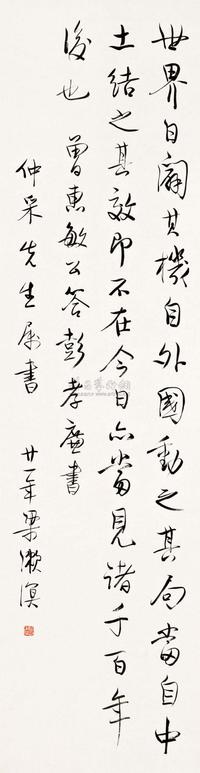 世界日开其机自外国动之其局当自中
土结之其效即不在今日亦当见诸千百年
后也 曾惠敏公答彭孝廉书
仲采先生属书
廿一年梁漱溟